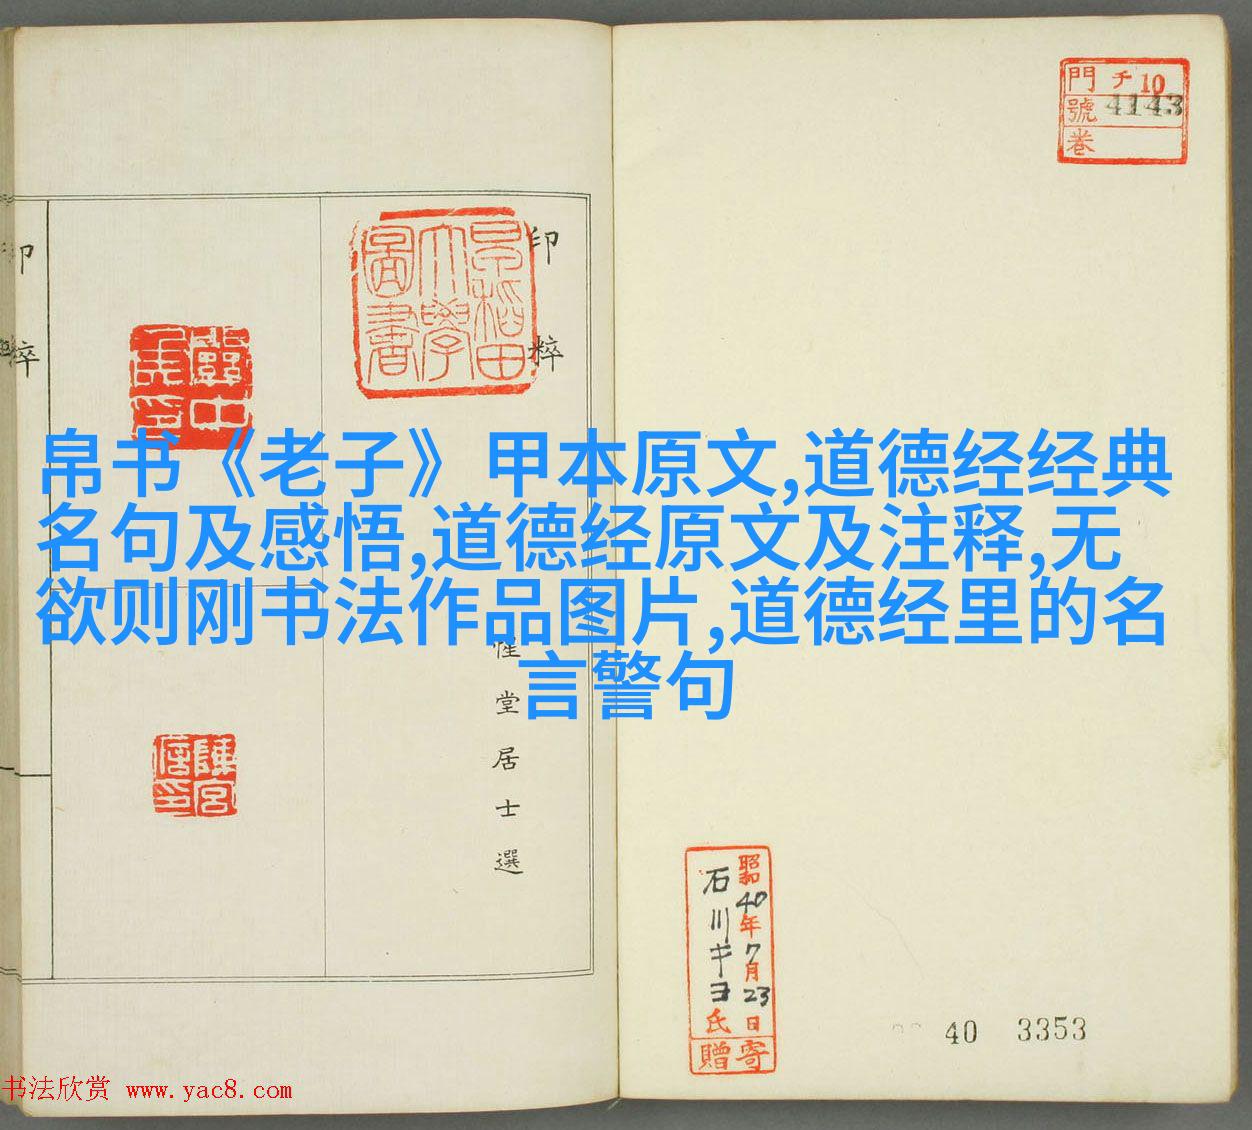 門 チ 10
號 4143
卷
印粹
早稻田
大學
圖書
印粹
帛书《老子》甲本原文,道德经经典
名句及感悟,道德经原文及注释,无
欲则刚书法作品图片,道德经里的名
言警句
惟堂居士選
陳宮
信印
昭和40年7月23日
石川キヨ氏
寄贈
40 3353
书法欣赏 www.yac8.com